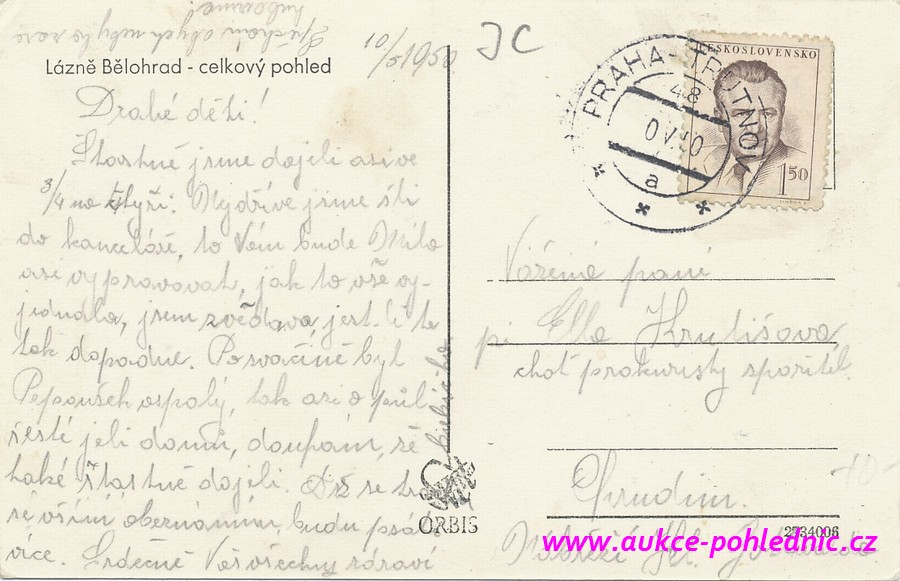 Spěchám abych
10/5 1950
JC
Lázně Bělohrad - celkový pohled
ČESKOSLOVENSKO
1 50
PRAHA - TRUTNOV
48
0 V. 50
a
Drahé děti!
Šťastně jsme dojeli asi ve
3/4 na čtyři. Nejdříve jsme šli
do kanceláře, to Vám bude Míla
asi vypravovat, jak to vše vy-
jednala, jsem zvědavá, jest-li to
tak dopadne. Po svačině byl
Pepoušek ospalý, tak asi o půl
šesté jeli domů, doufám, že
také šťastně dojeli. Zde se
se vším obeznámím, budu psáti
více. Srdečně Vás všechny zdraví
babička
Vážená paní
pí Ella Krutišova
choť prokuristy spořitel.
Chrudim.
Nábřeží
ORBIS
2734006
10-
www.aukce-pohlednic.cz